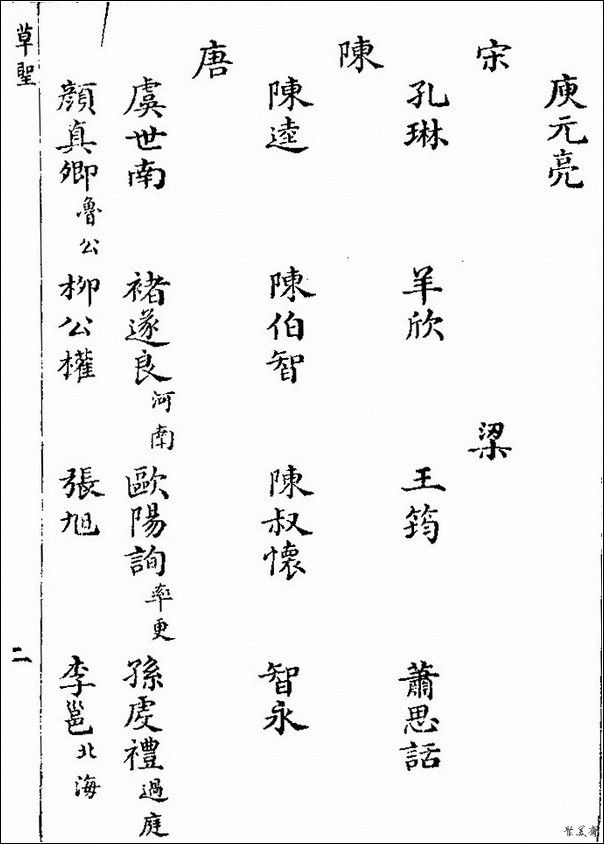 庾元亮
宋 梁
孔琳 羊欣 王筠 蕭思話
陳
陳逵 陳伯智 陳叔懷 智永
唐
虞世南 褚遂良河南 歐陽詢率更 孫虔禮過庭
顔真卿魯公 柳公權 張旭 李邕北海
草聖 二